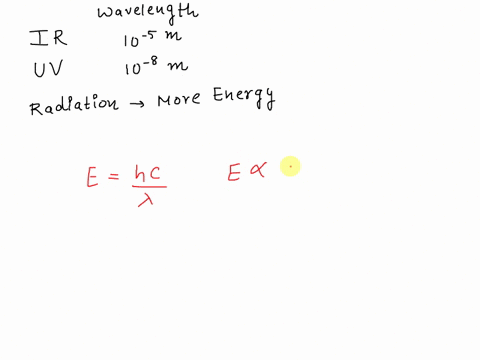 Wavelength
IR 10⁻⁵ m
UV 10⁻⁸ m
Radiation → More Energy
E = hc/λ E ∝